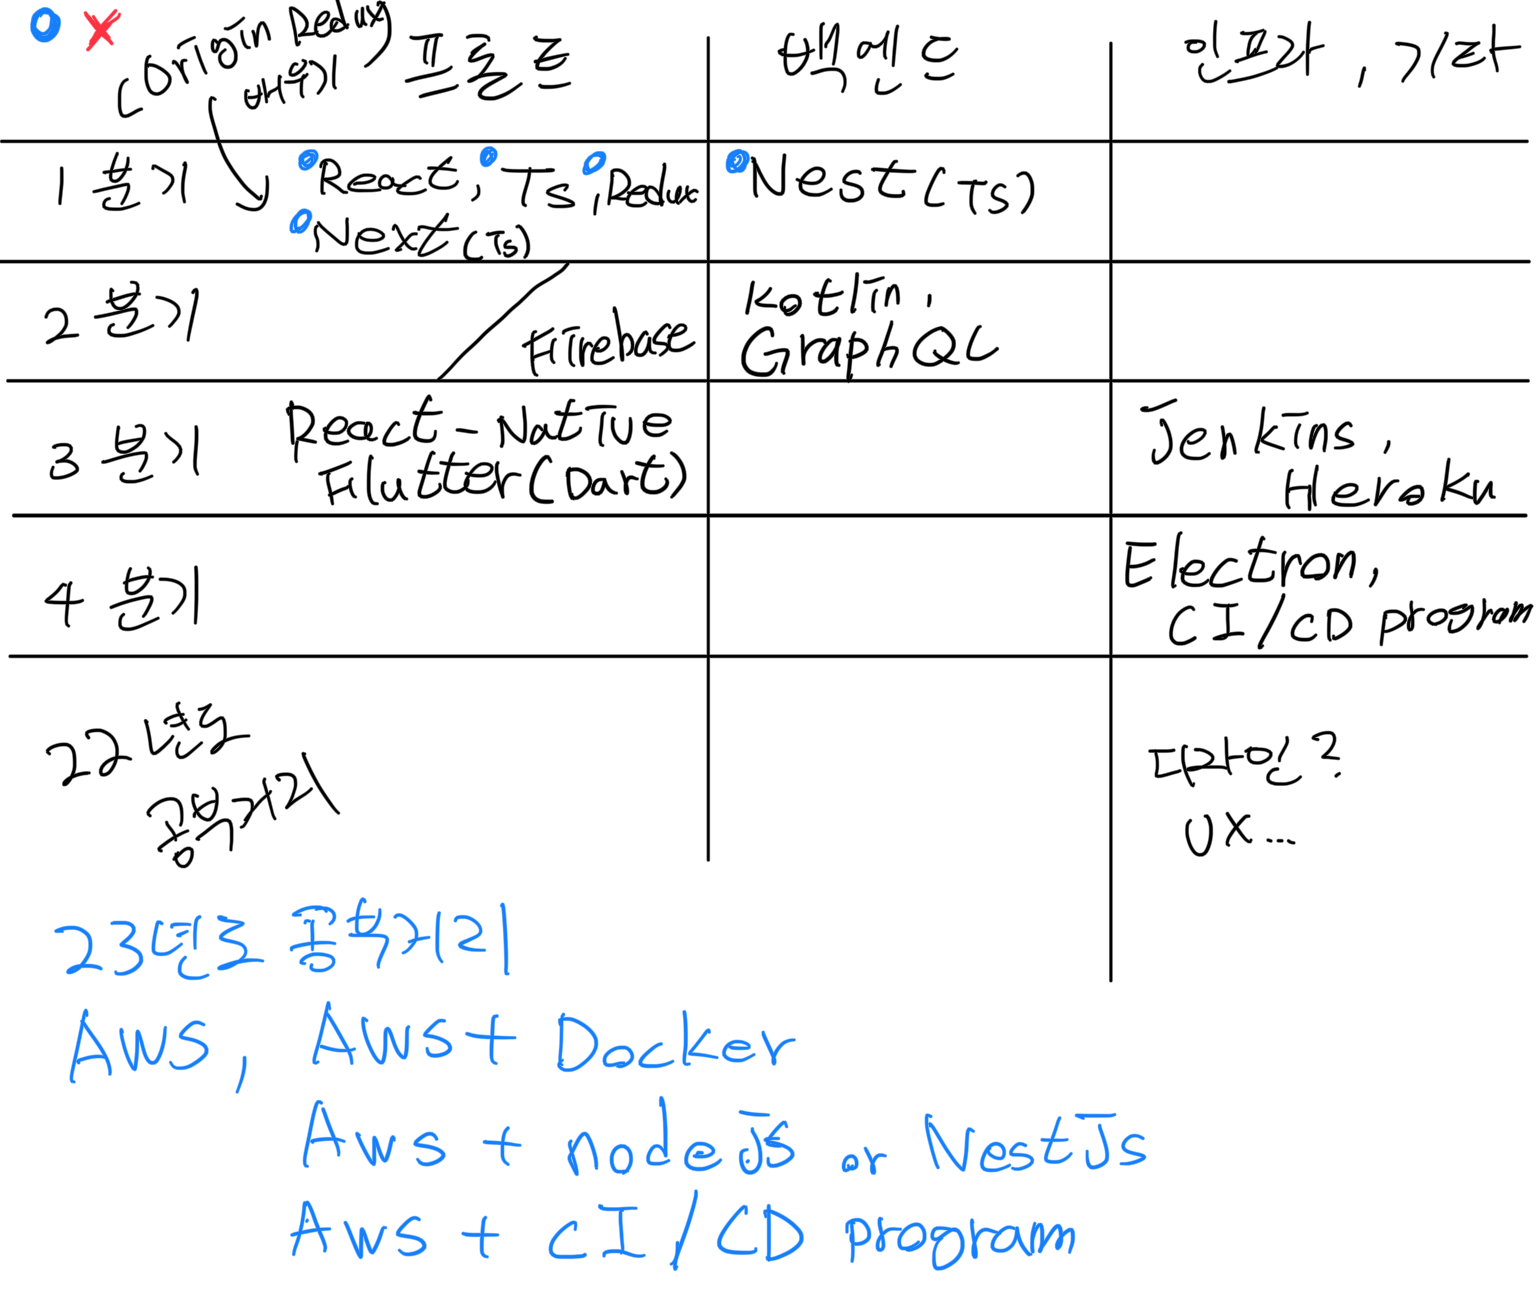 (Origin Redux
배우기)
프론트 백엔드 인프라, 기타
1분기 React, Ts, Redux Nest(Ts)
Next(Ts)
2분기 Firebase Kotlin,
GraphQL
3분기 React-Native Jenkins,
Flutter(Dart) Heroku
4분기 Electron,
CI/CD program
22년도
공부거리
디자인?
UX...
23년도 공부거리
AWS, AWS + Docker
Aws + nodejs or NestJs
Aws + CI/CD program